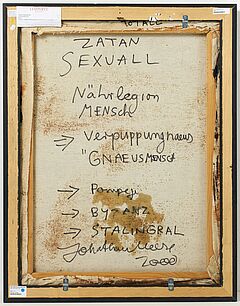 TOTALL
ZATAN
SEXUALL
Nährlegion
MENSCH
→ Verpuppunghaeus
"GNAEUSMENSCH
→ Pompeji
→ BYTANZ
→ STALINGRAL
Jonathan Meese
2000